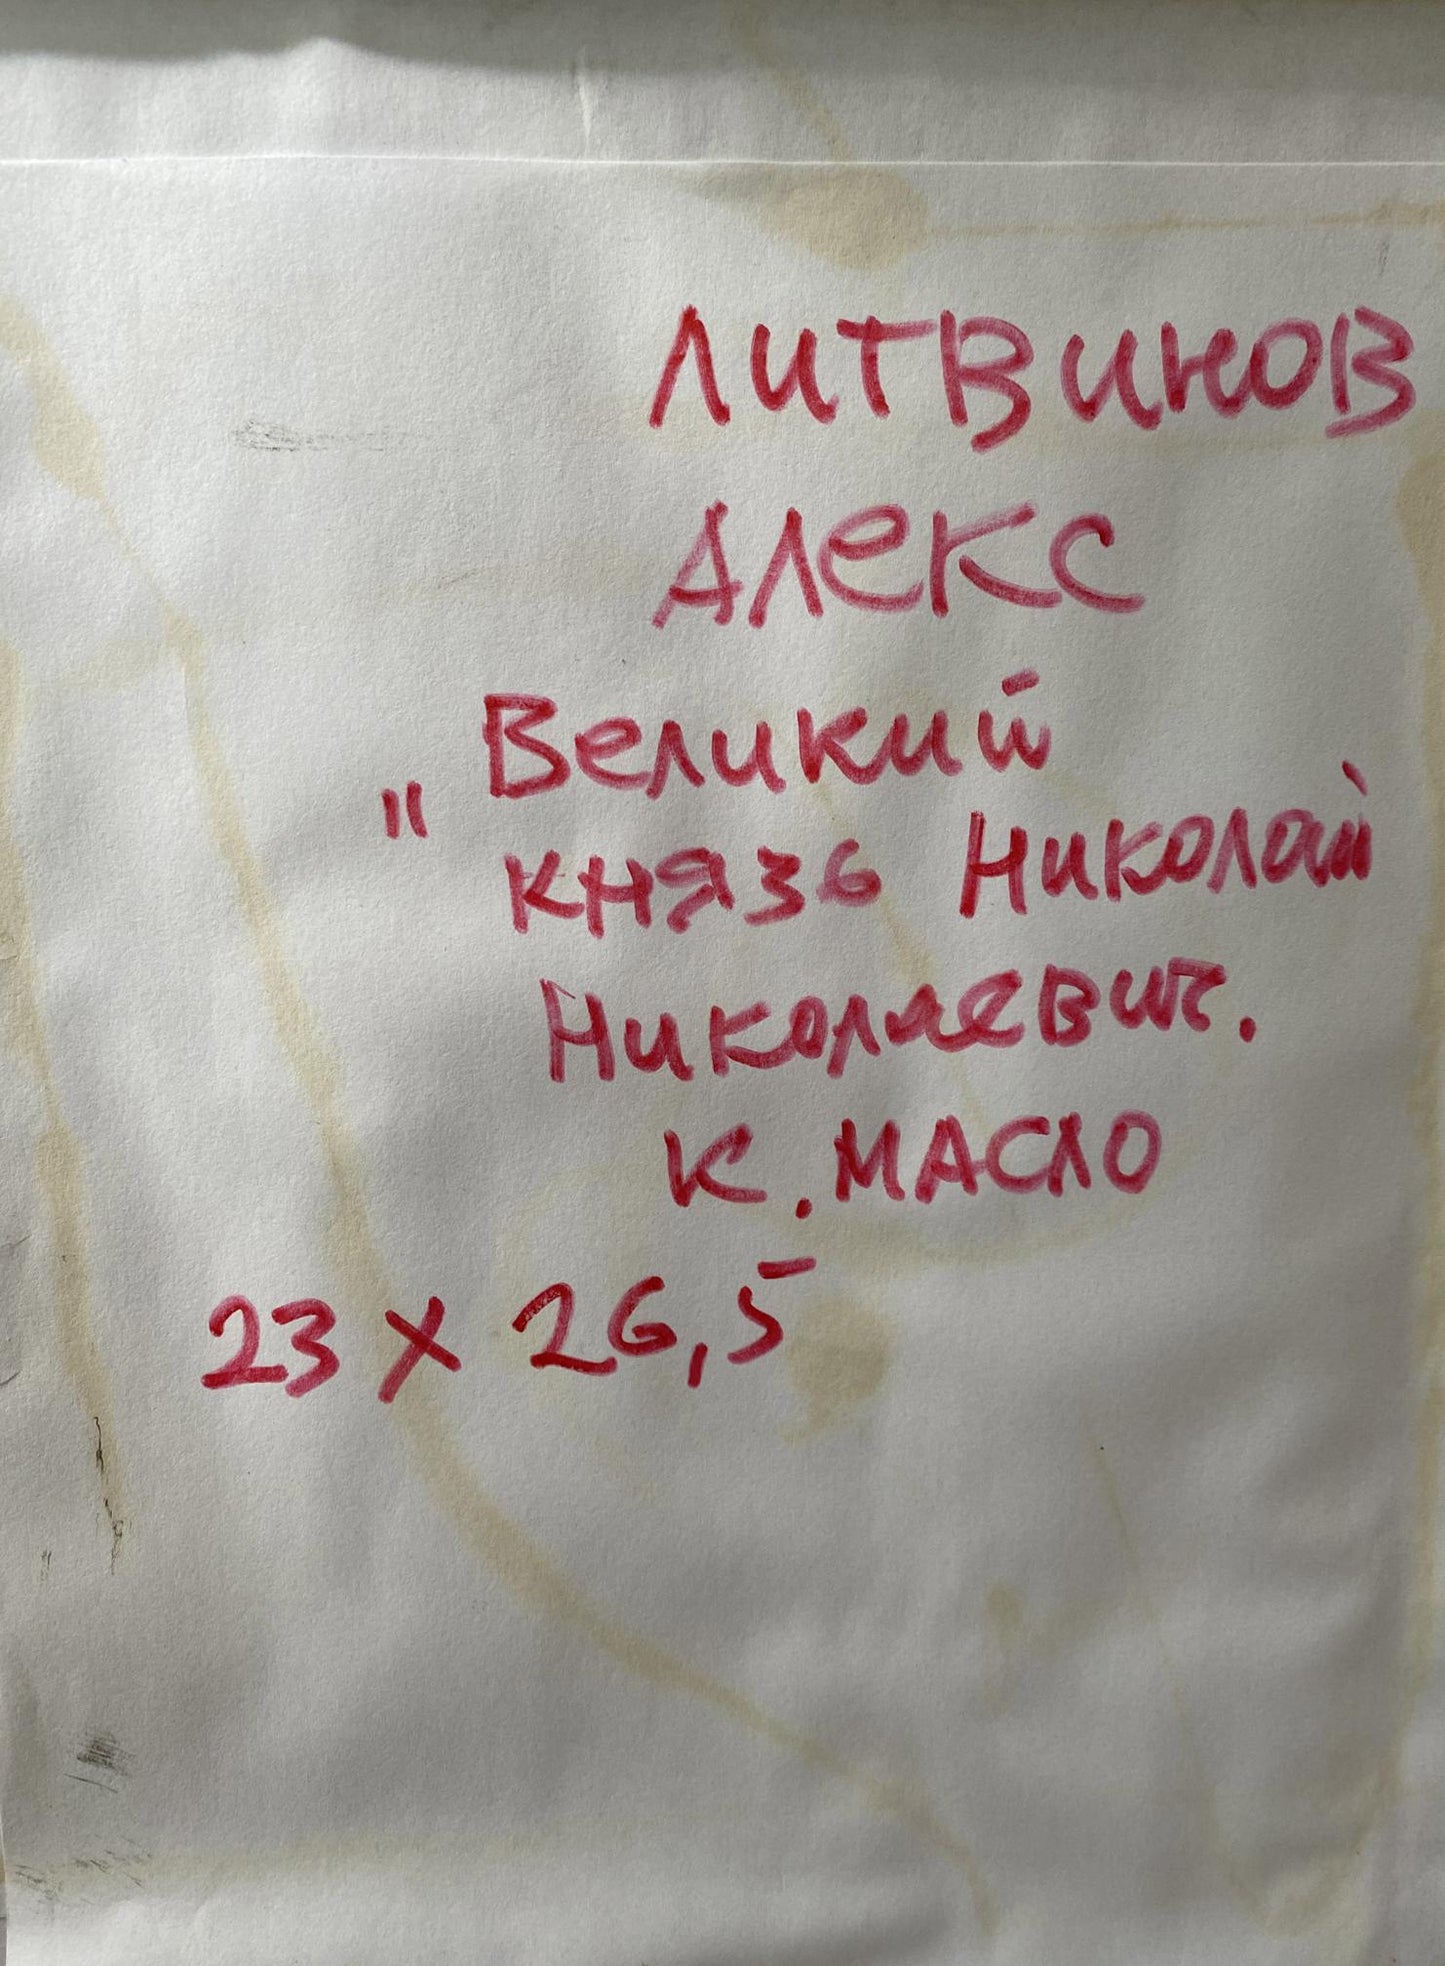 ЛИТВИНОВ
АЛЕКС
Великий
" князь Николай
Николаевич.
К. МАСЛО
23 х 26,5